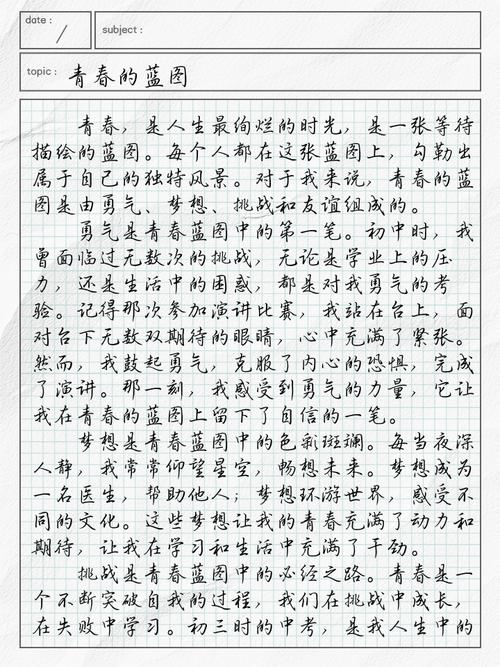 date :
/
subject :
topic :
青春的蓝图
青春，是人生最绚烂的时光，是一张等待
描绘的蓝图。每个人都在这张蓝图上，勾勒出
属于自己的独特风景。对于我来说，青春的蓝
图是由勇气、梦想、挑战和友谊组成的。
勇气是青春蓝图中的第一笔。初中时，我
曾面临过无数次的挑战，无论是学业上的压
力，还是生活中的困惑，都是对我勇气的考
验。记得那次参加演讲比赛，我站在台上，面
对台下无数双期待的眼睛，心中充满了紧张。
然而，我鼓起勇气，克服了内心的恐惧，完成
了演讲。那一刻，我感受到勇气的力量，它让
我在青春的蓝图上留下了自信的一笔。
梦想是青春蓝图中的色彩斑斓。每当夜深
人静，我常常仰望星空，畅想未来。梦想成为
一名医生，帮助他人；梦想环游世界，感受不
同的文化。这些梦想让我的青春充满了动力和
期待，让我在学习和生活中充满了干劲。
挑战是青春蓝图中的必经之路。青春是一
个不断突破自我的过程，我们在挑战中成长，
在失败中学习。初三时的中考，是我人生中的